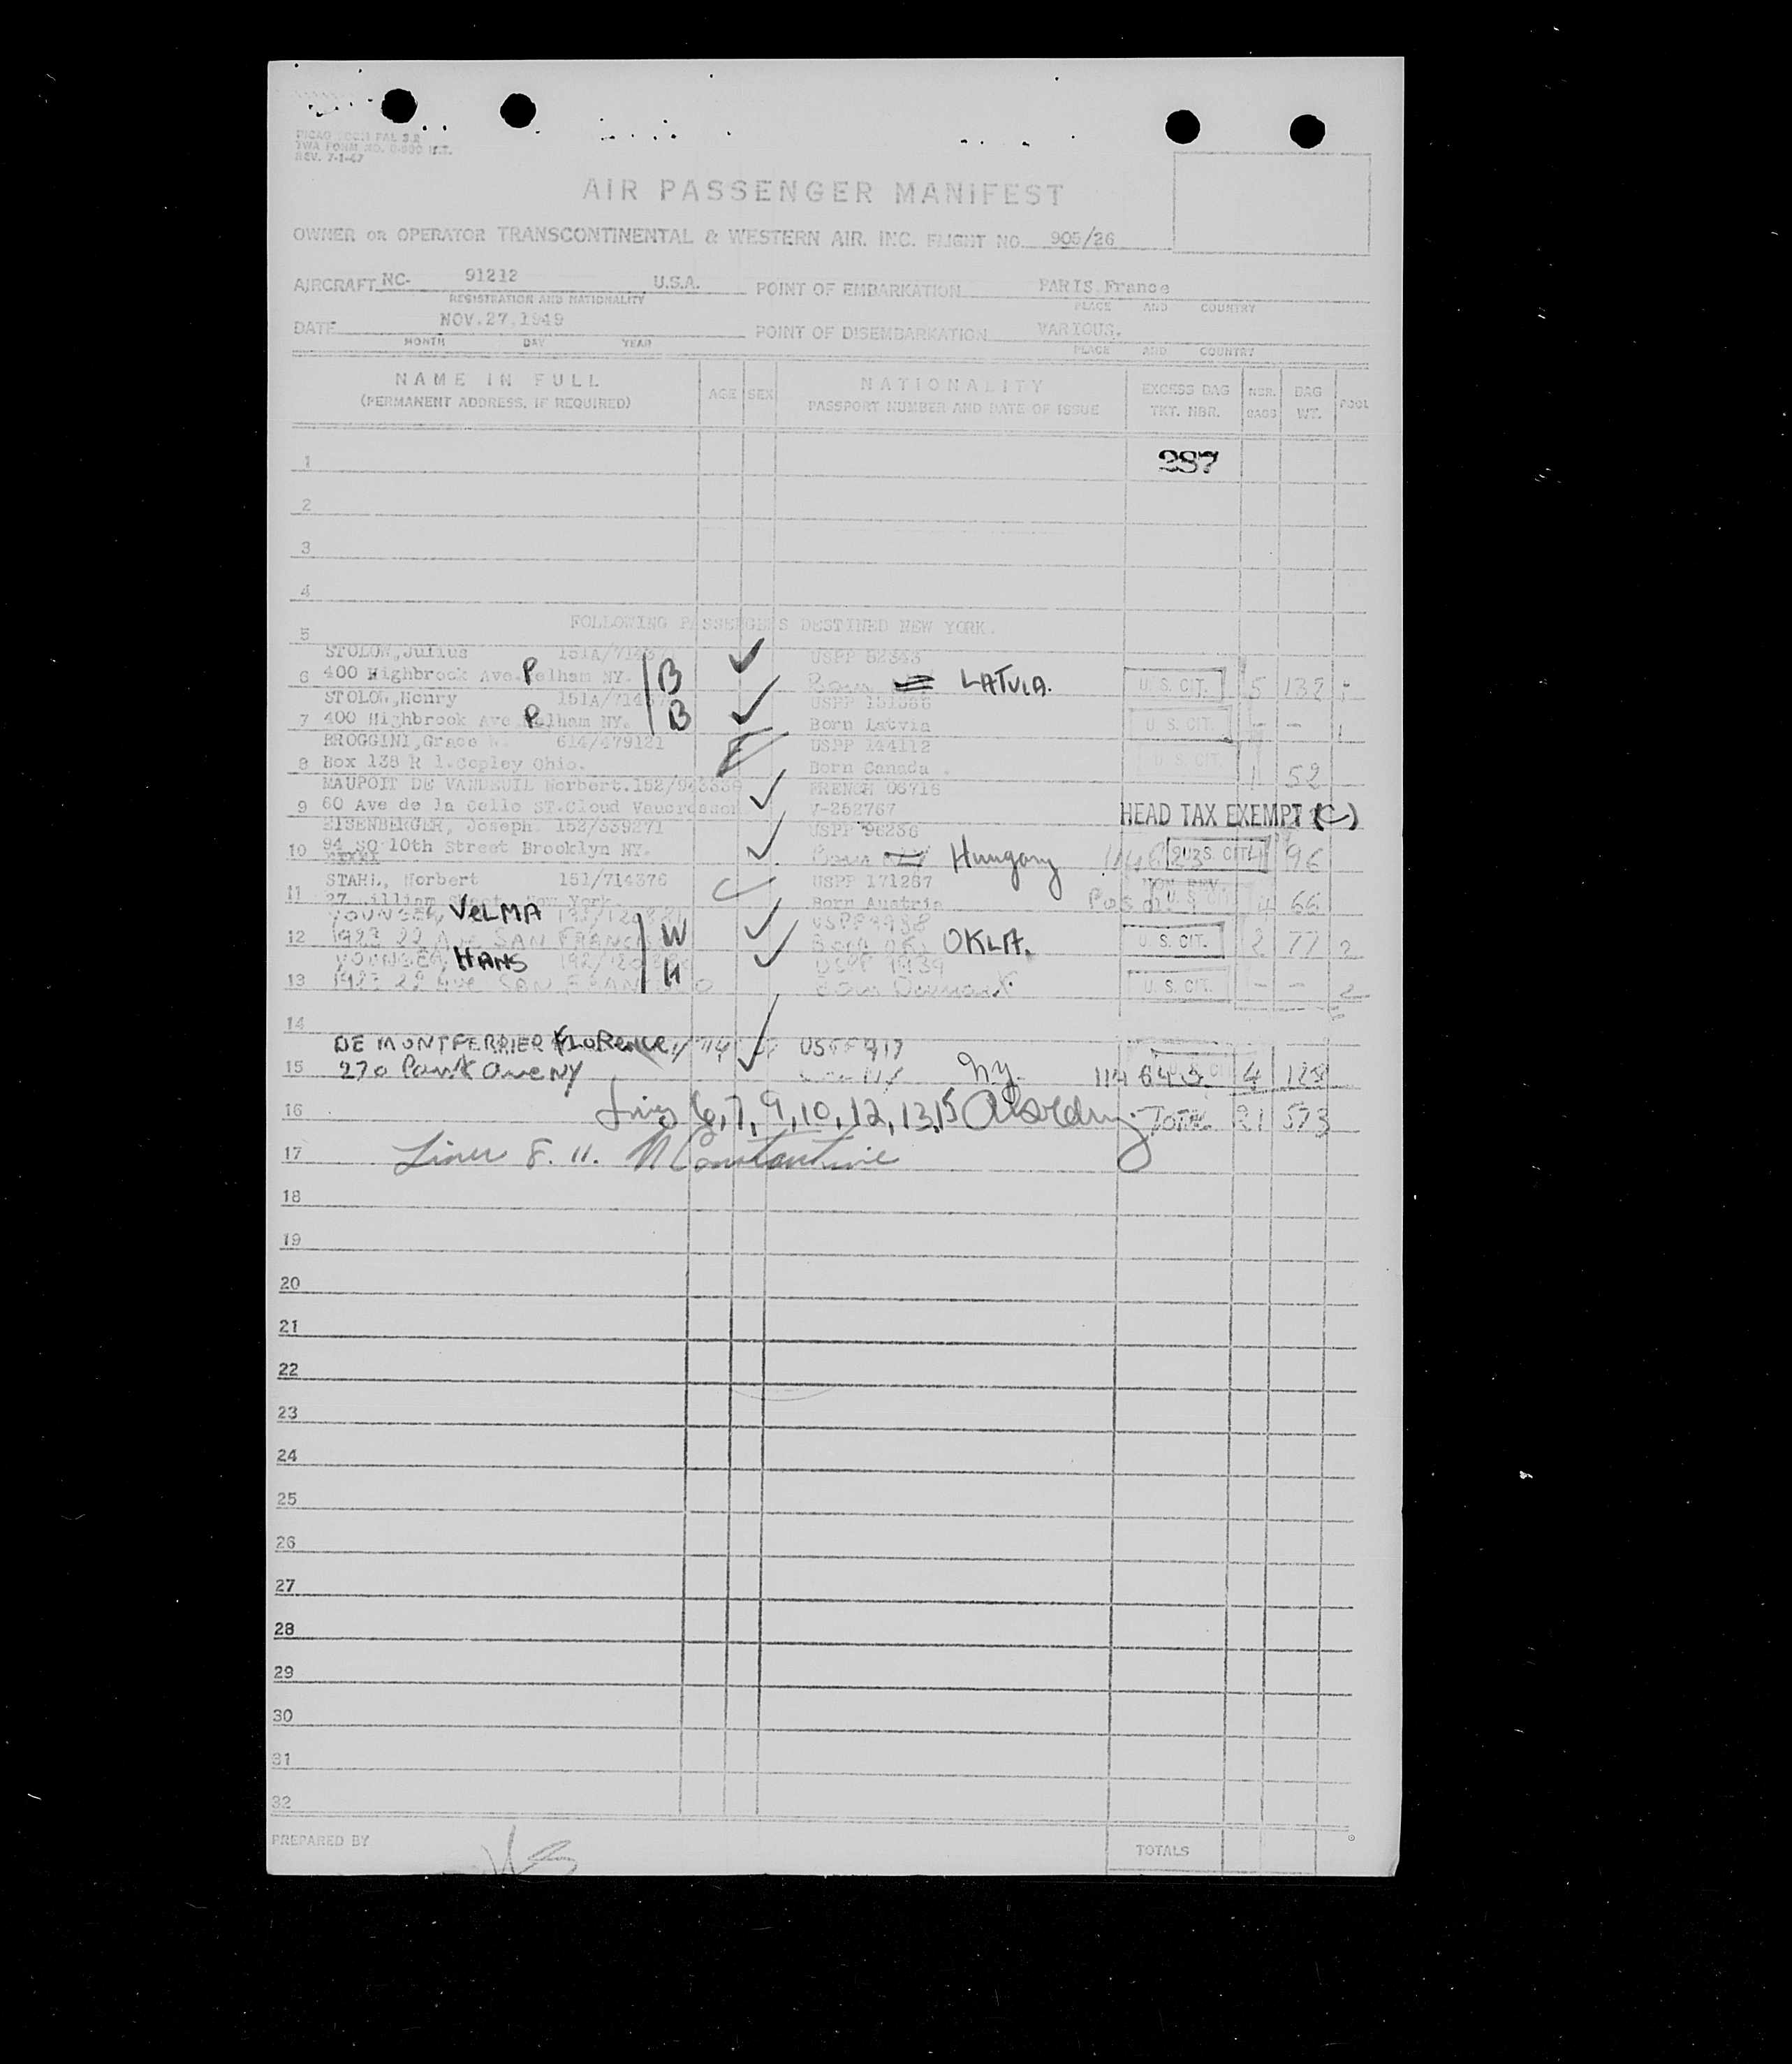 REV. 7-1-47
AIR PASSENGER MANIFEST
OWNER OR OPERATOR TRANSCONTINENTAL & WESTERN AIR. INC. FLIGHT NO. 905/26
AIRCRAFT NC- 91212 U.S.A. POINT OF EMBARKATION PARIS France
REGISTRATION AND NATIONALITY PLACE AND COUNTRY
DATE NOV.27.1949 POINT OF DISEMBARKATION VARIOUS.
MONTH DAY YEAR PLACE AND COUNTRY
NAME IN FULL AGE SEX NATIONALITY EXCESS BAG NBR. BAG POOL
(PERMANENT ADDRESS, IF REQUIRED) PASSPORT NUMBER AND DATE OF ISSUE TKT. NBR. BAGS WT.
1 287
2
3
4
FOLLOWING PASSENGERS DESTINED NEW YORK.
5
STOLOW, Julius USPP 52343
6 400 Highbrook Ave. Pelham NY. B Born LATVIA. U. S. CIT. 5 132
STOLOW, Henry
7 400 Highbrook Ave Pelham NY. B Born Latvia U. S. CIT. - -
BROGGINI, Grace 614/479121 USPP 144112
8 Box 138 R 1. Copley Ohio. Born Canada. U. S. CIT. 1 52
MAUPOIT DE VANDEUIL Norbert. FRENCH 06716
9 60 Ave de la Celle ST.Cloud Vaucresson V-252767 HEAD TAX EXEMPT (C)
EISENBERGER, Joseph. 152/339271 USPP 96236
10 94 SO 10th Street Brooklyn NY. Born Hungary U. S. CIT. 4 96
STAHL, Norbert 151/714376 USPP 171267
11 27 William Street New York. Born Austria U. S. CIT. 4 66
YOUNGER, VELMA
12 1923 22 Ave SAN FRANCISCO W Born OKLA. U. S. CIT. 2 77 2
YOUNGER, HANS USPP 1939
13 1923 22 Ave SAN FRANCISCO H Born Denmark. U. S. CIT. - - 2
14
DE MONTFERRIER FLORENCE USPP 917
15 270 Park Ave NY NY. 114643 4 128
16 Lines 6, 7, 9, 10, 12, 13, 15 TOTAL 21 573
17 Lines 8. 11. Constantine
18
19
20
21
22
23
24
25
26
27
28
29
30
31
32
PREPARED BY TOTALS